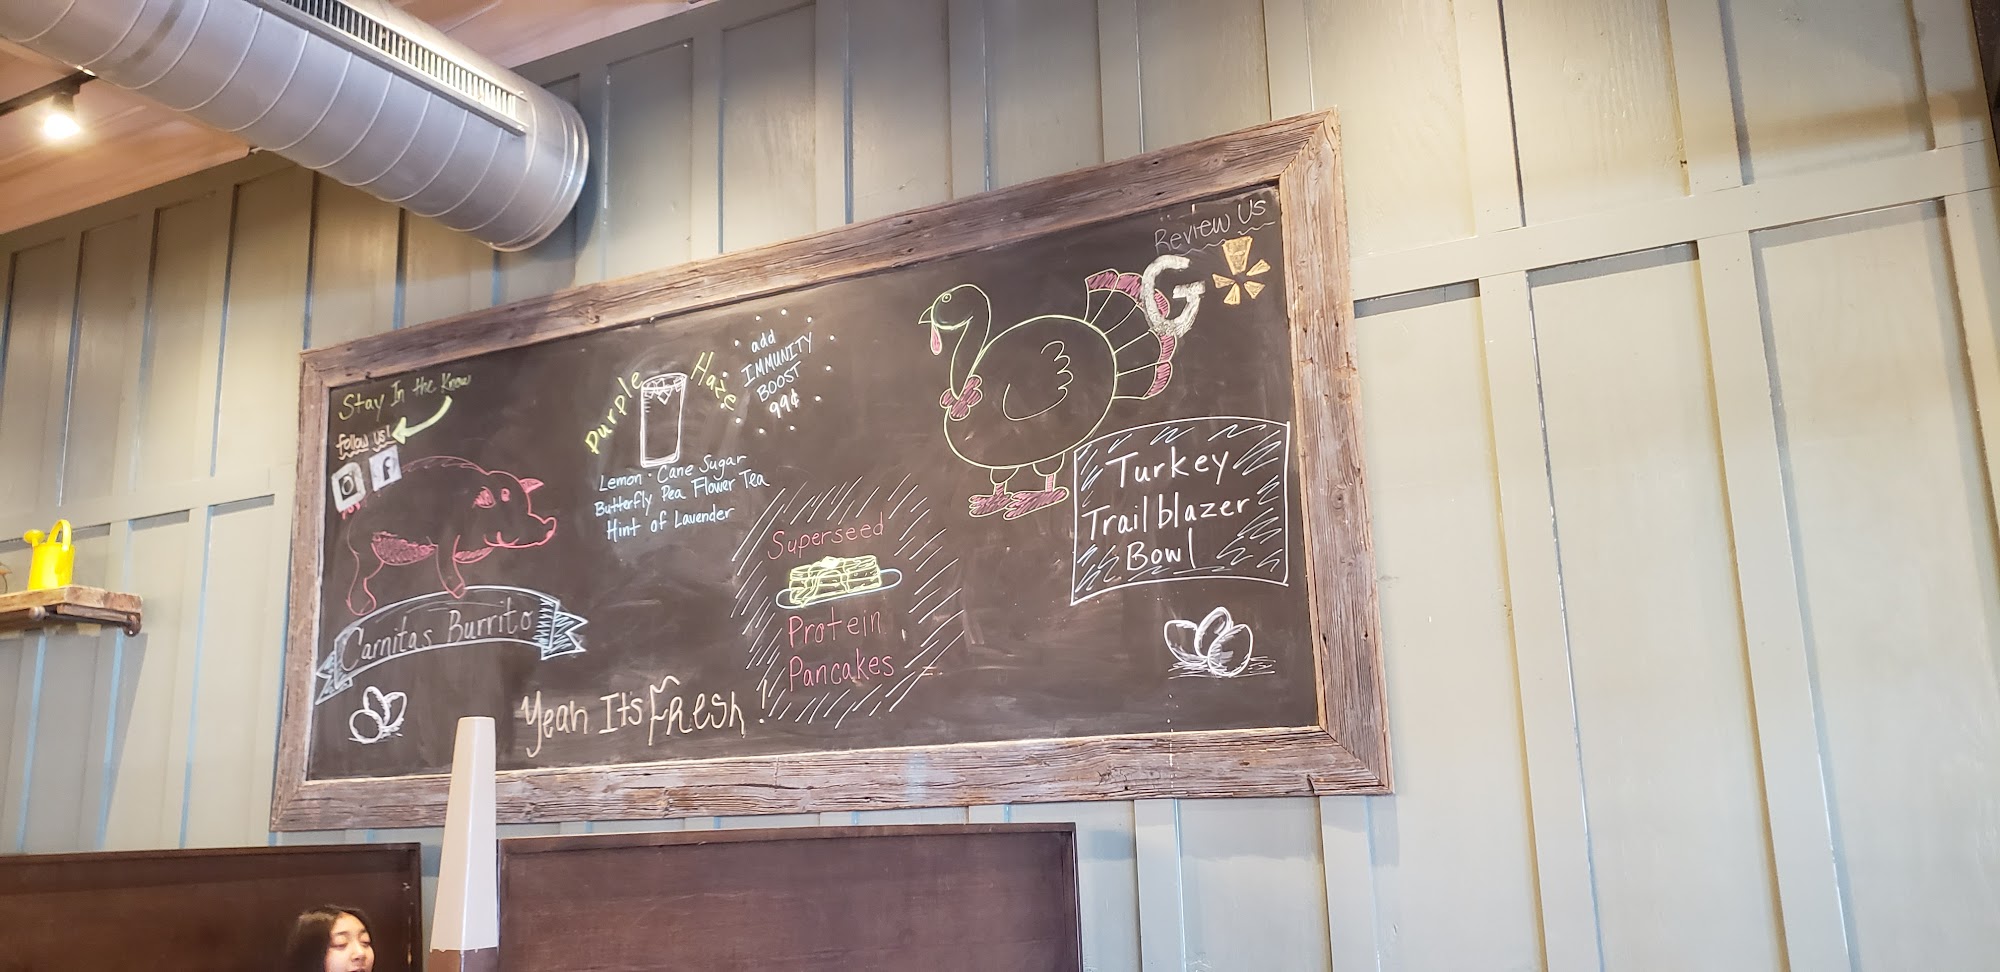 Stay In the Know
follow us!
f
Carnitas Burrito
Purple Haze
add
IMMUNITY
BOOST
99¢
Lemon · Cane Sugar
Butterfly Pea Flower Tea
Hint of Lavender
Superseed
Protein
Pancakes
Yeah It's Fresh!
Review Us
G
Turkey
Trailblazer
Bowl